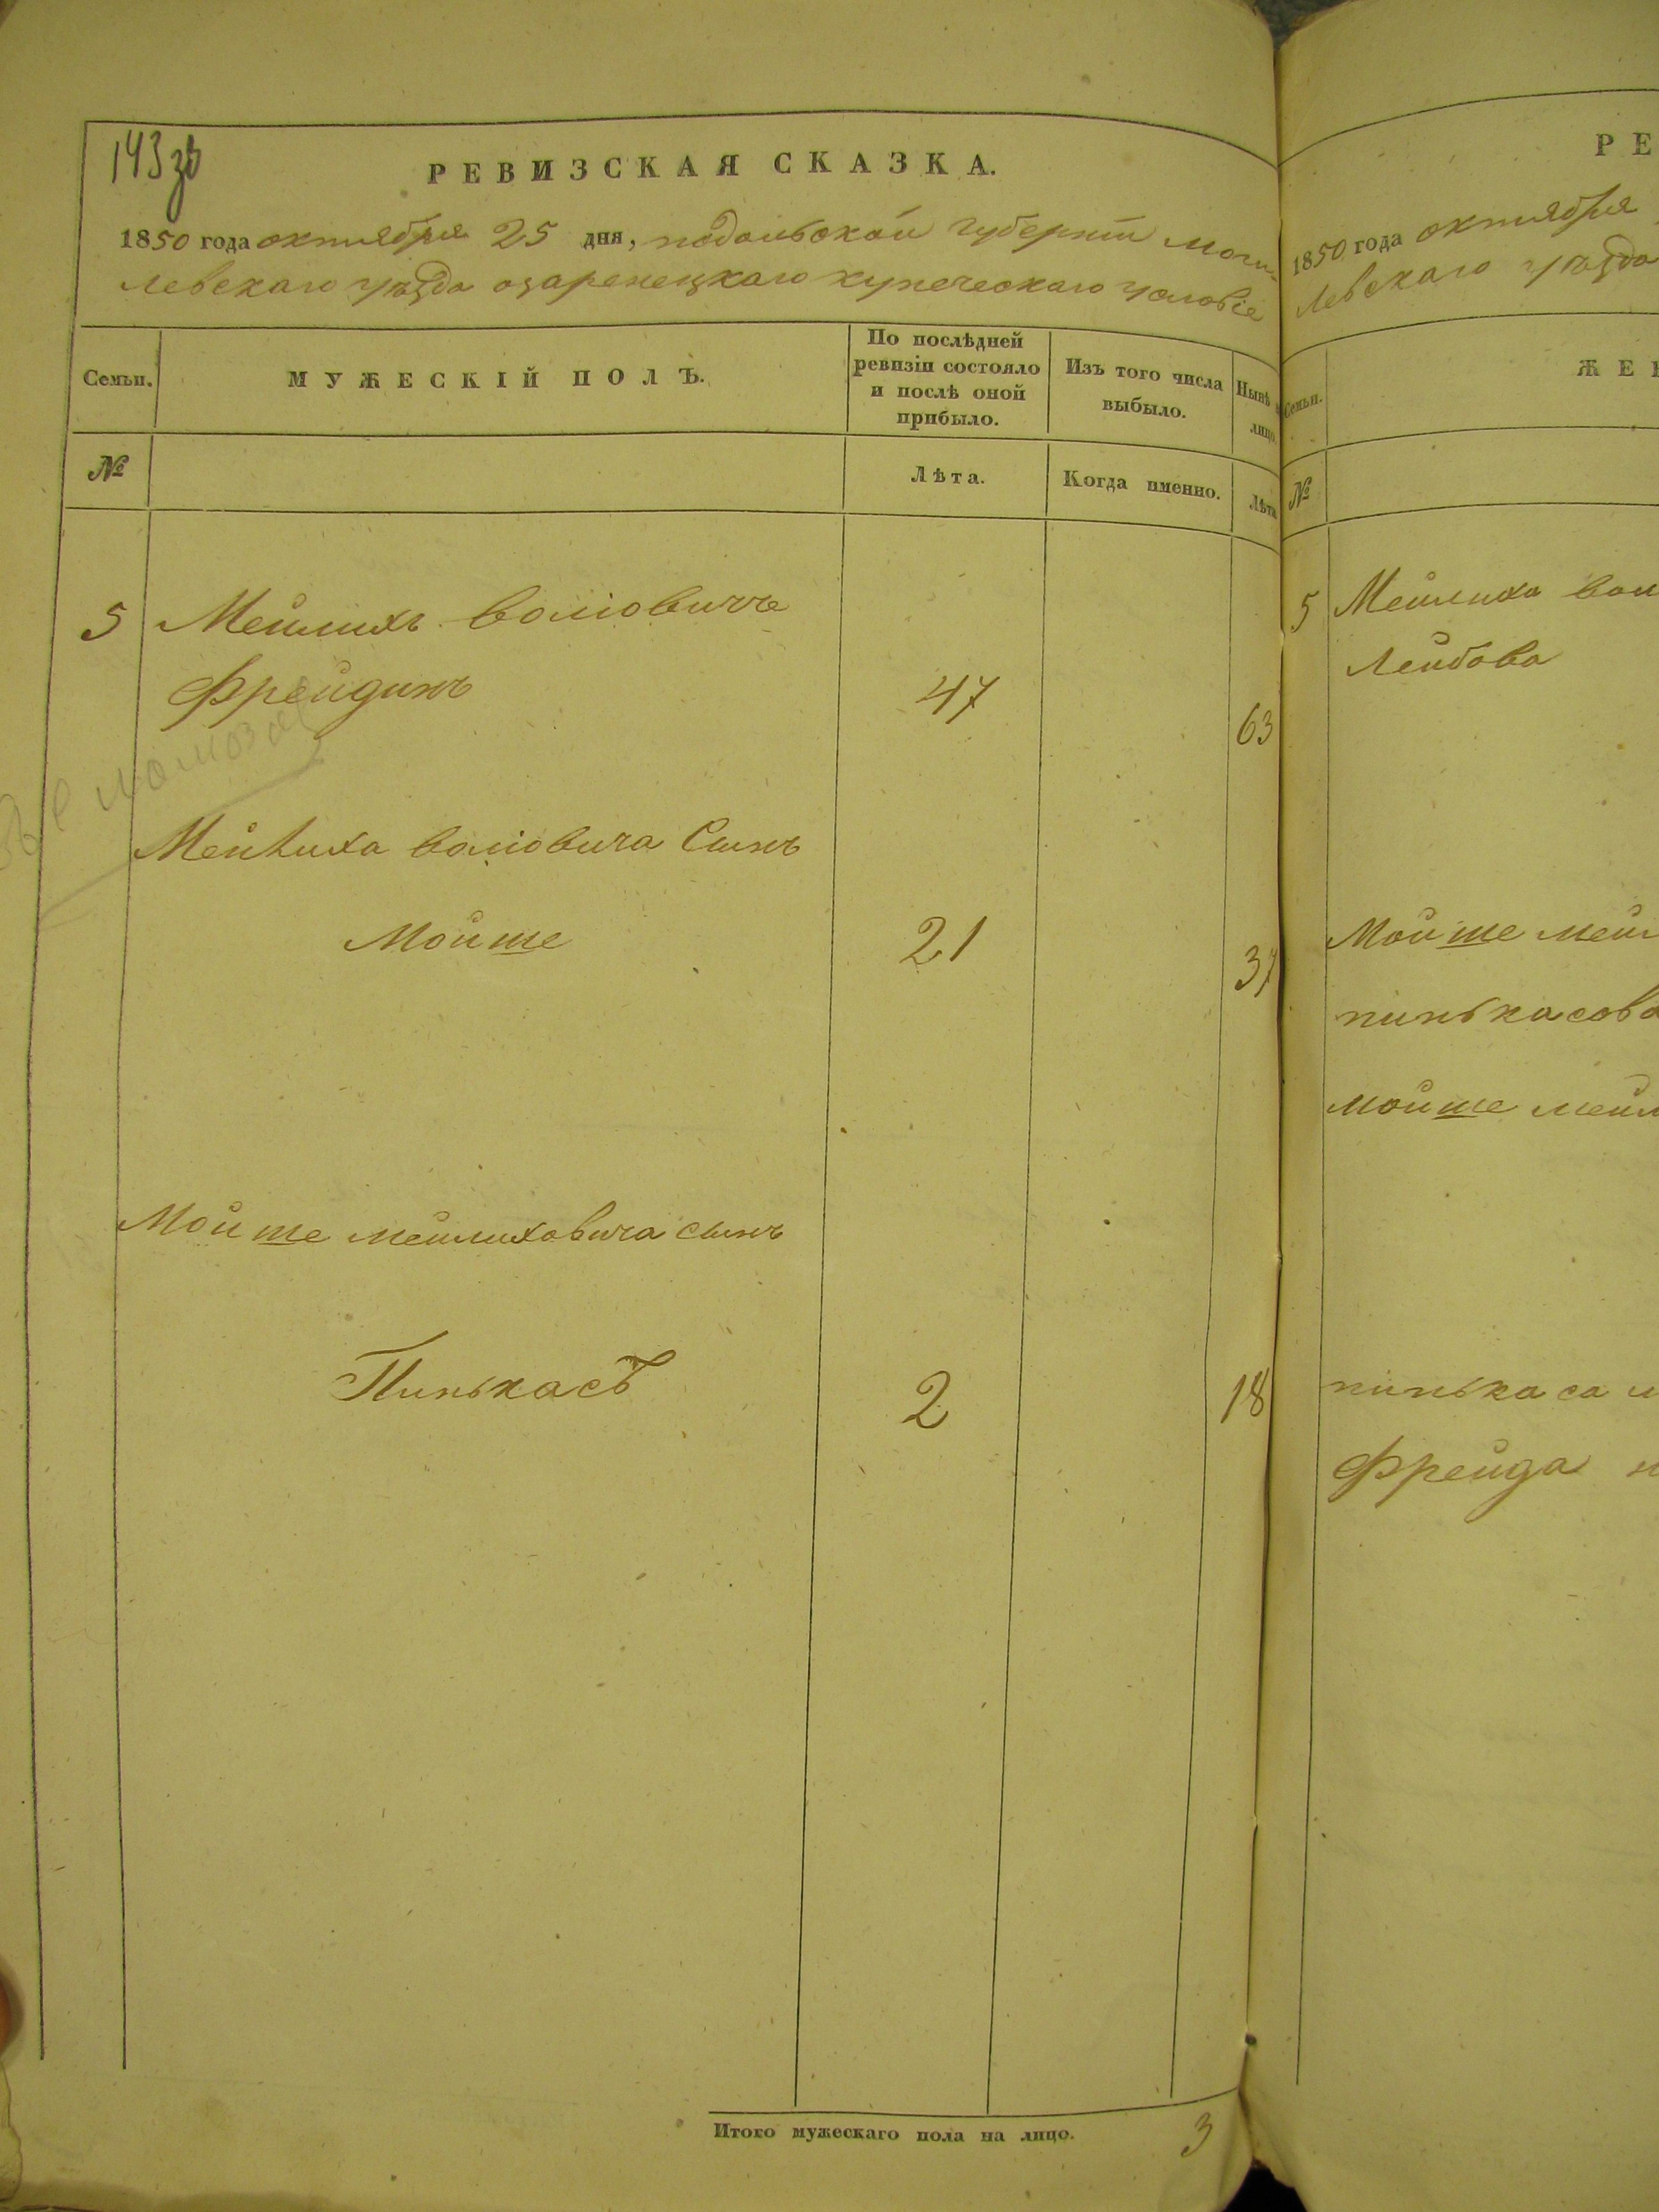 143 зв
РЕВИЗСКАЯ СКАЗКА.
1850 года октября 25 дня, подольской губернии моги-
левскаго уѣзда озаренецкаго купеческаго
Семьи.
МУЖЕСКІЙ ПОЛЪ.
По послѣдней
ревизіи состояло
и послѣ оной
прибыло.
Изъ того числа
выбыло.
Нынѣ
лицо.
№
Лѣта.
Когда именно.
Лѣта
5 Мейлихъ Волiовичъ
Фрейдинъ 47 63
Мейлиха Волiовича Сынъ
Мойше 21 37
Мойше мейлиховича сынъ
Пинькасъ 2 18
Итого мужескаго пола на лицо. 3
РЕ
1850 года октября
левскаго уѣзда
Семьи.
ЖЕ
№
5 Мейлиха
Лейбова
Мойше
пинькасова
мойше
пинькаса
Фрейда